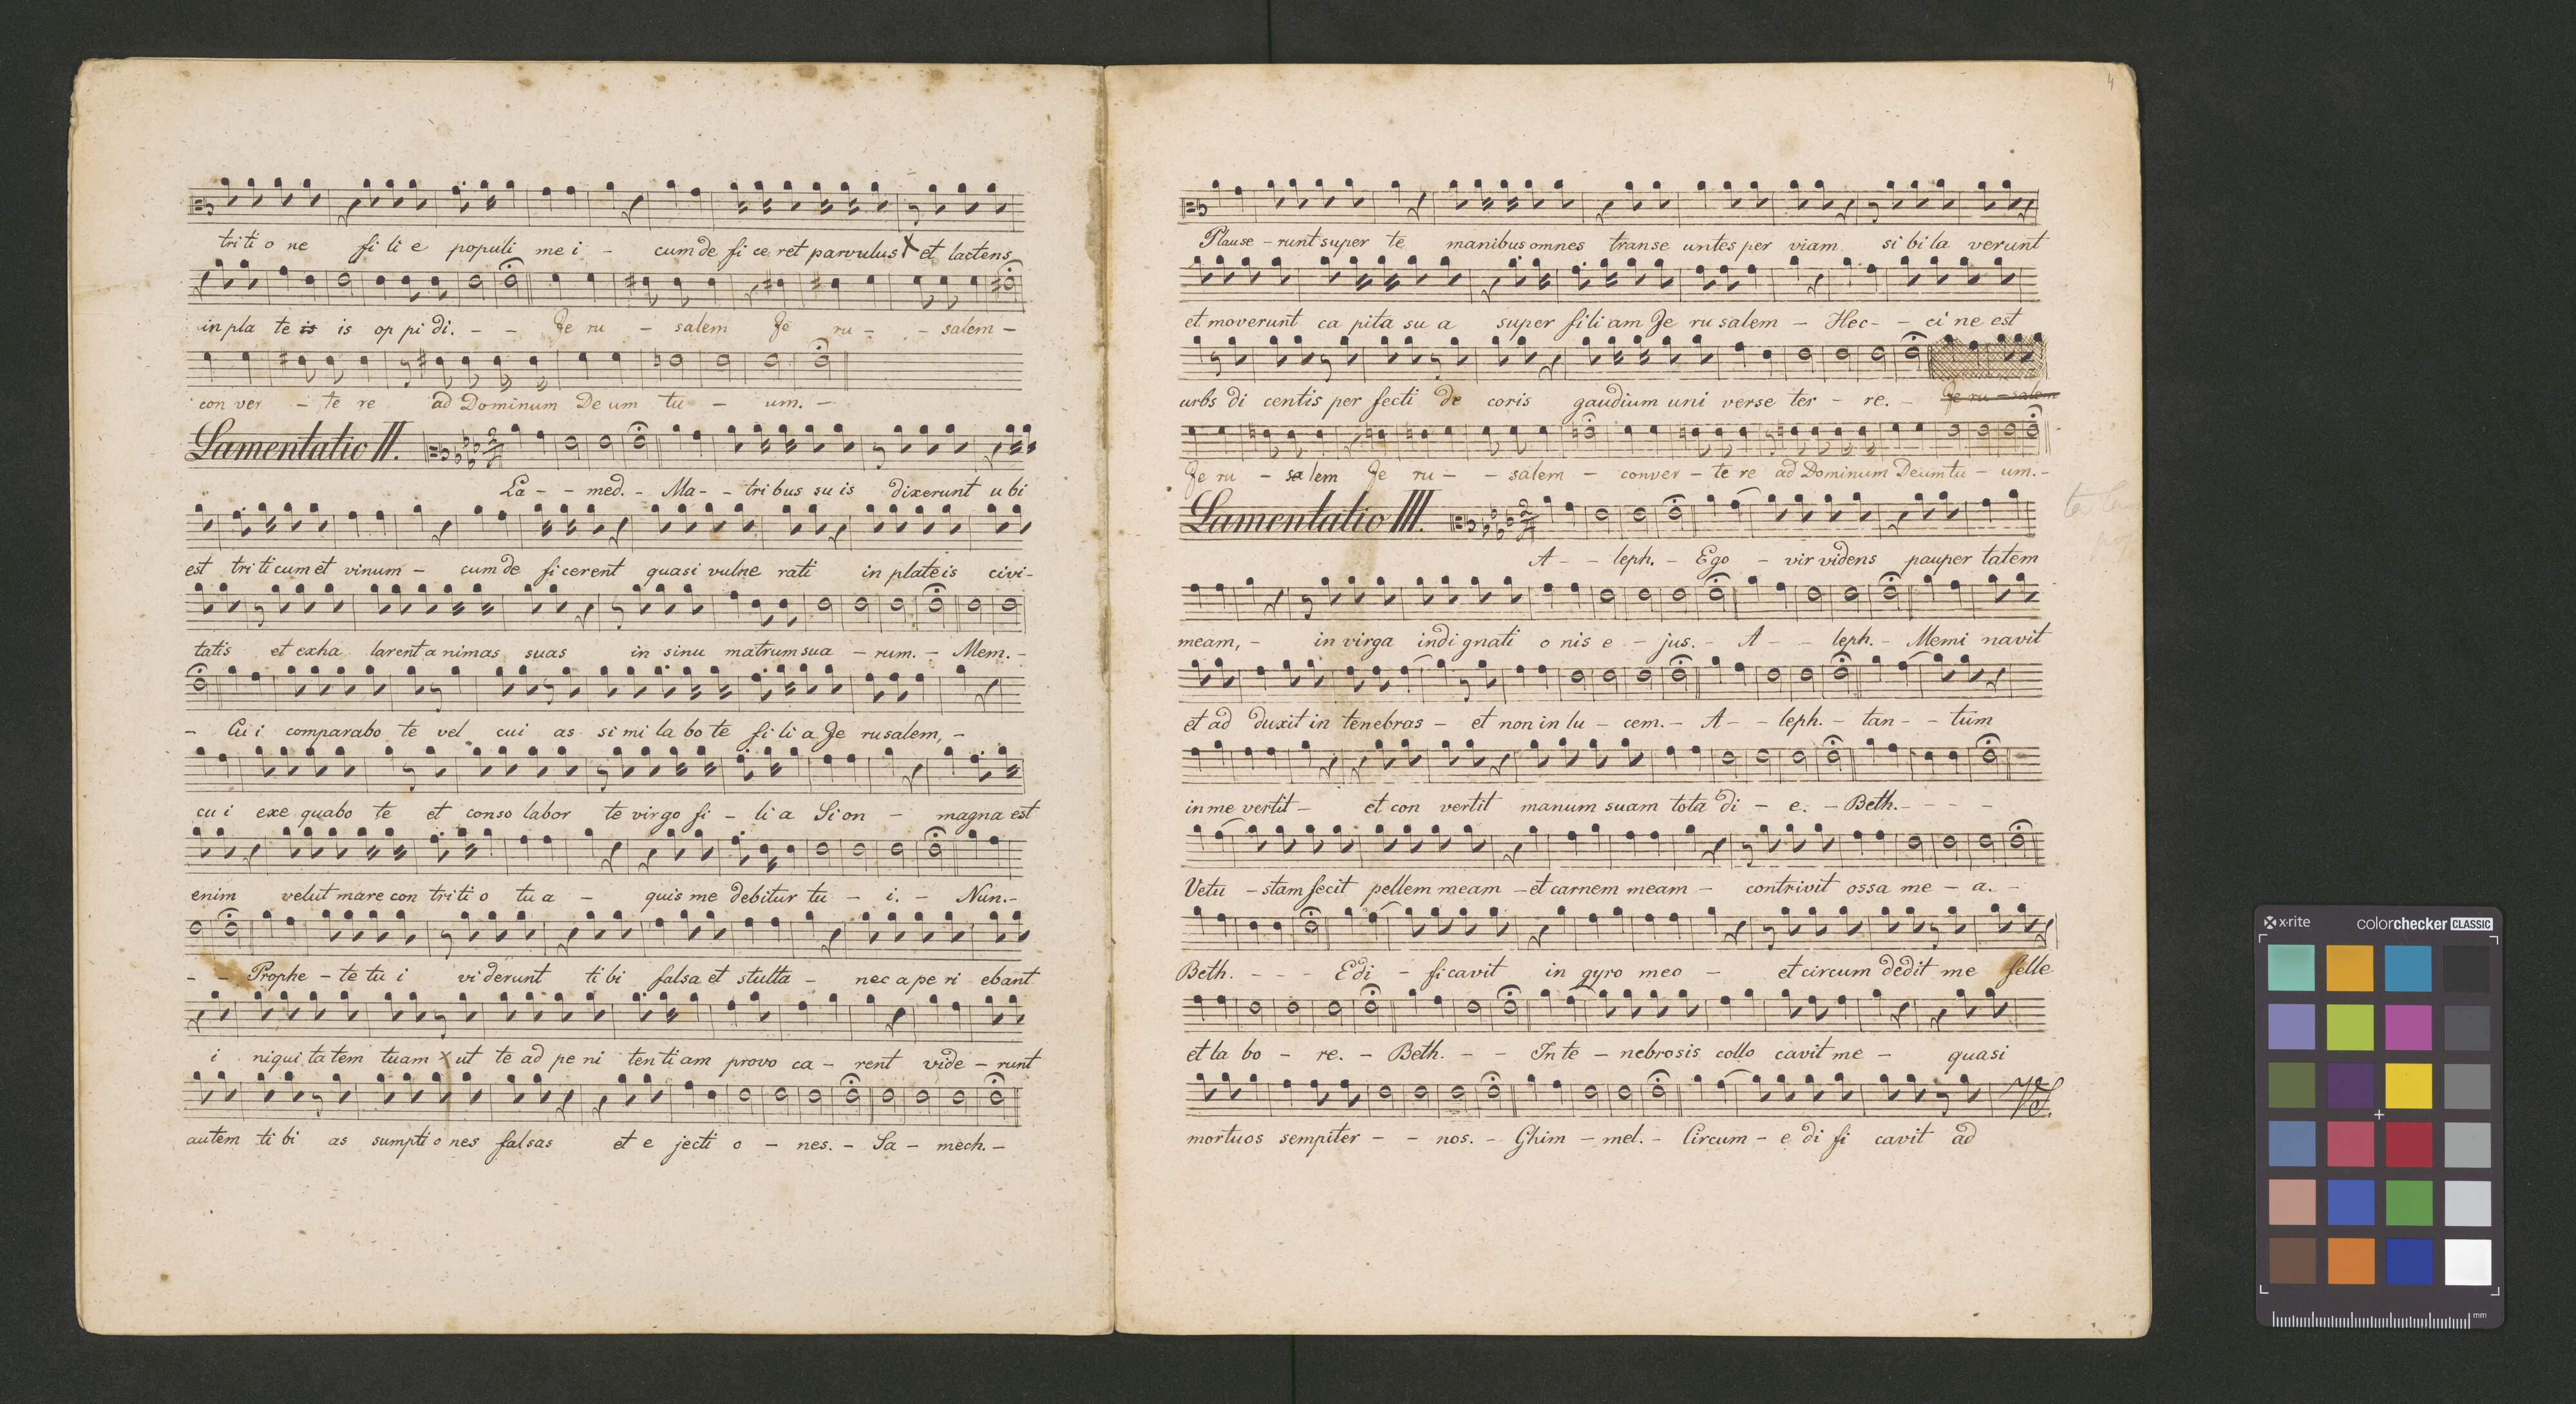 tri ti o ne fi li e populi me i - cum de fi ce ret parvulus et lactens
in pla te is is op pi di. - - Je ru - salem Je ru - - salem -
con ver - te re ad Dominum De um tu - um. -
Lamentatio II.
La - - med. - Ma - - tri bus su is dixerunt u bi
est tri ti cum et vinum - cum de ficerent quasi vulne rati in plateis civi-
tatis et exha larent a nimas suas in sinu matrum sua - rum. - Mem. -
- Cu i comparabo te vel cui as si mi la bo te fi li a Je rusalem, -
cu i exe quabo te et conso labor te virgo fi - li a Si on - magna est
enim velut mare con tri ti o tu a - quis me debitur tu - i. - Nun. -
- - Prophe - te tu i vi derunt ti bi falsa et stulta - nec a pe ri ebant
i niqui ta tem tuam ut te ad pe ni ten ti am provo ca - rent vide - runt
autem ti bi as sumpti o nes falsas et e jecti o - nes. - Sa - mech. -
4
Plause - runt super te manibus omnes transe untes per viam si bi la verunt
et moverunt ca pita su a super fi li am Je ru salem - Hec - - ci ne est
urbs di centis per fecti de coris gaudium uni verse ter - re. - Je ru - salem
Je ru - sa lem Je ru - - salem - conver - te re ad Dominum Deum tu - um. -
Lamentatio III.
A - - leph. - Ego - vir videns pauper tatem
meam, - in virga indi gnati o nis e - jus. - A - - leph. - Memi navit
et ad duxit in tenebras - et non in lu - cem. - A - - leph. - tan - - tum
in me vertit - et con vertit manum suam tota di - e. - Beth. - - - -
Vetu - stam fecit pellem meam - et carnem meam - contrivit ossa me - a. -
Beth. - - - Edi - ficavit in gyro meo - et circum dedit me felle
et la bo - re. - Beth. - - In te - nebrosis collo cavit me - quasi
mortuos sempiter - - nos. - Ghim - mel. - Circum - e di fi cavit ad
x-rite colorchecker CLASSIC
mm